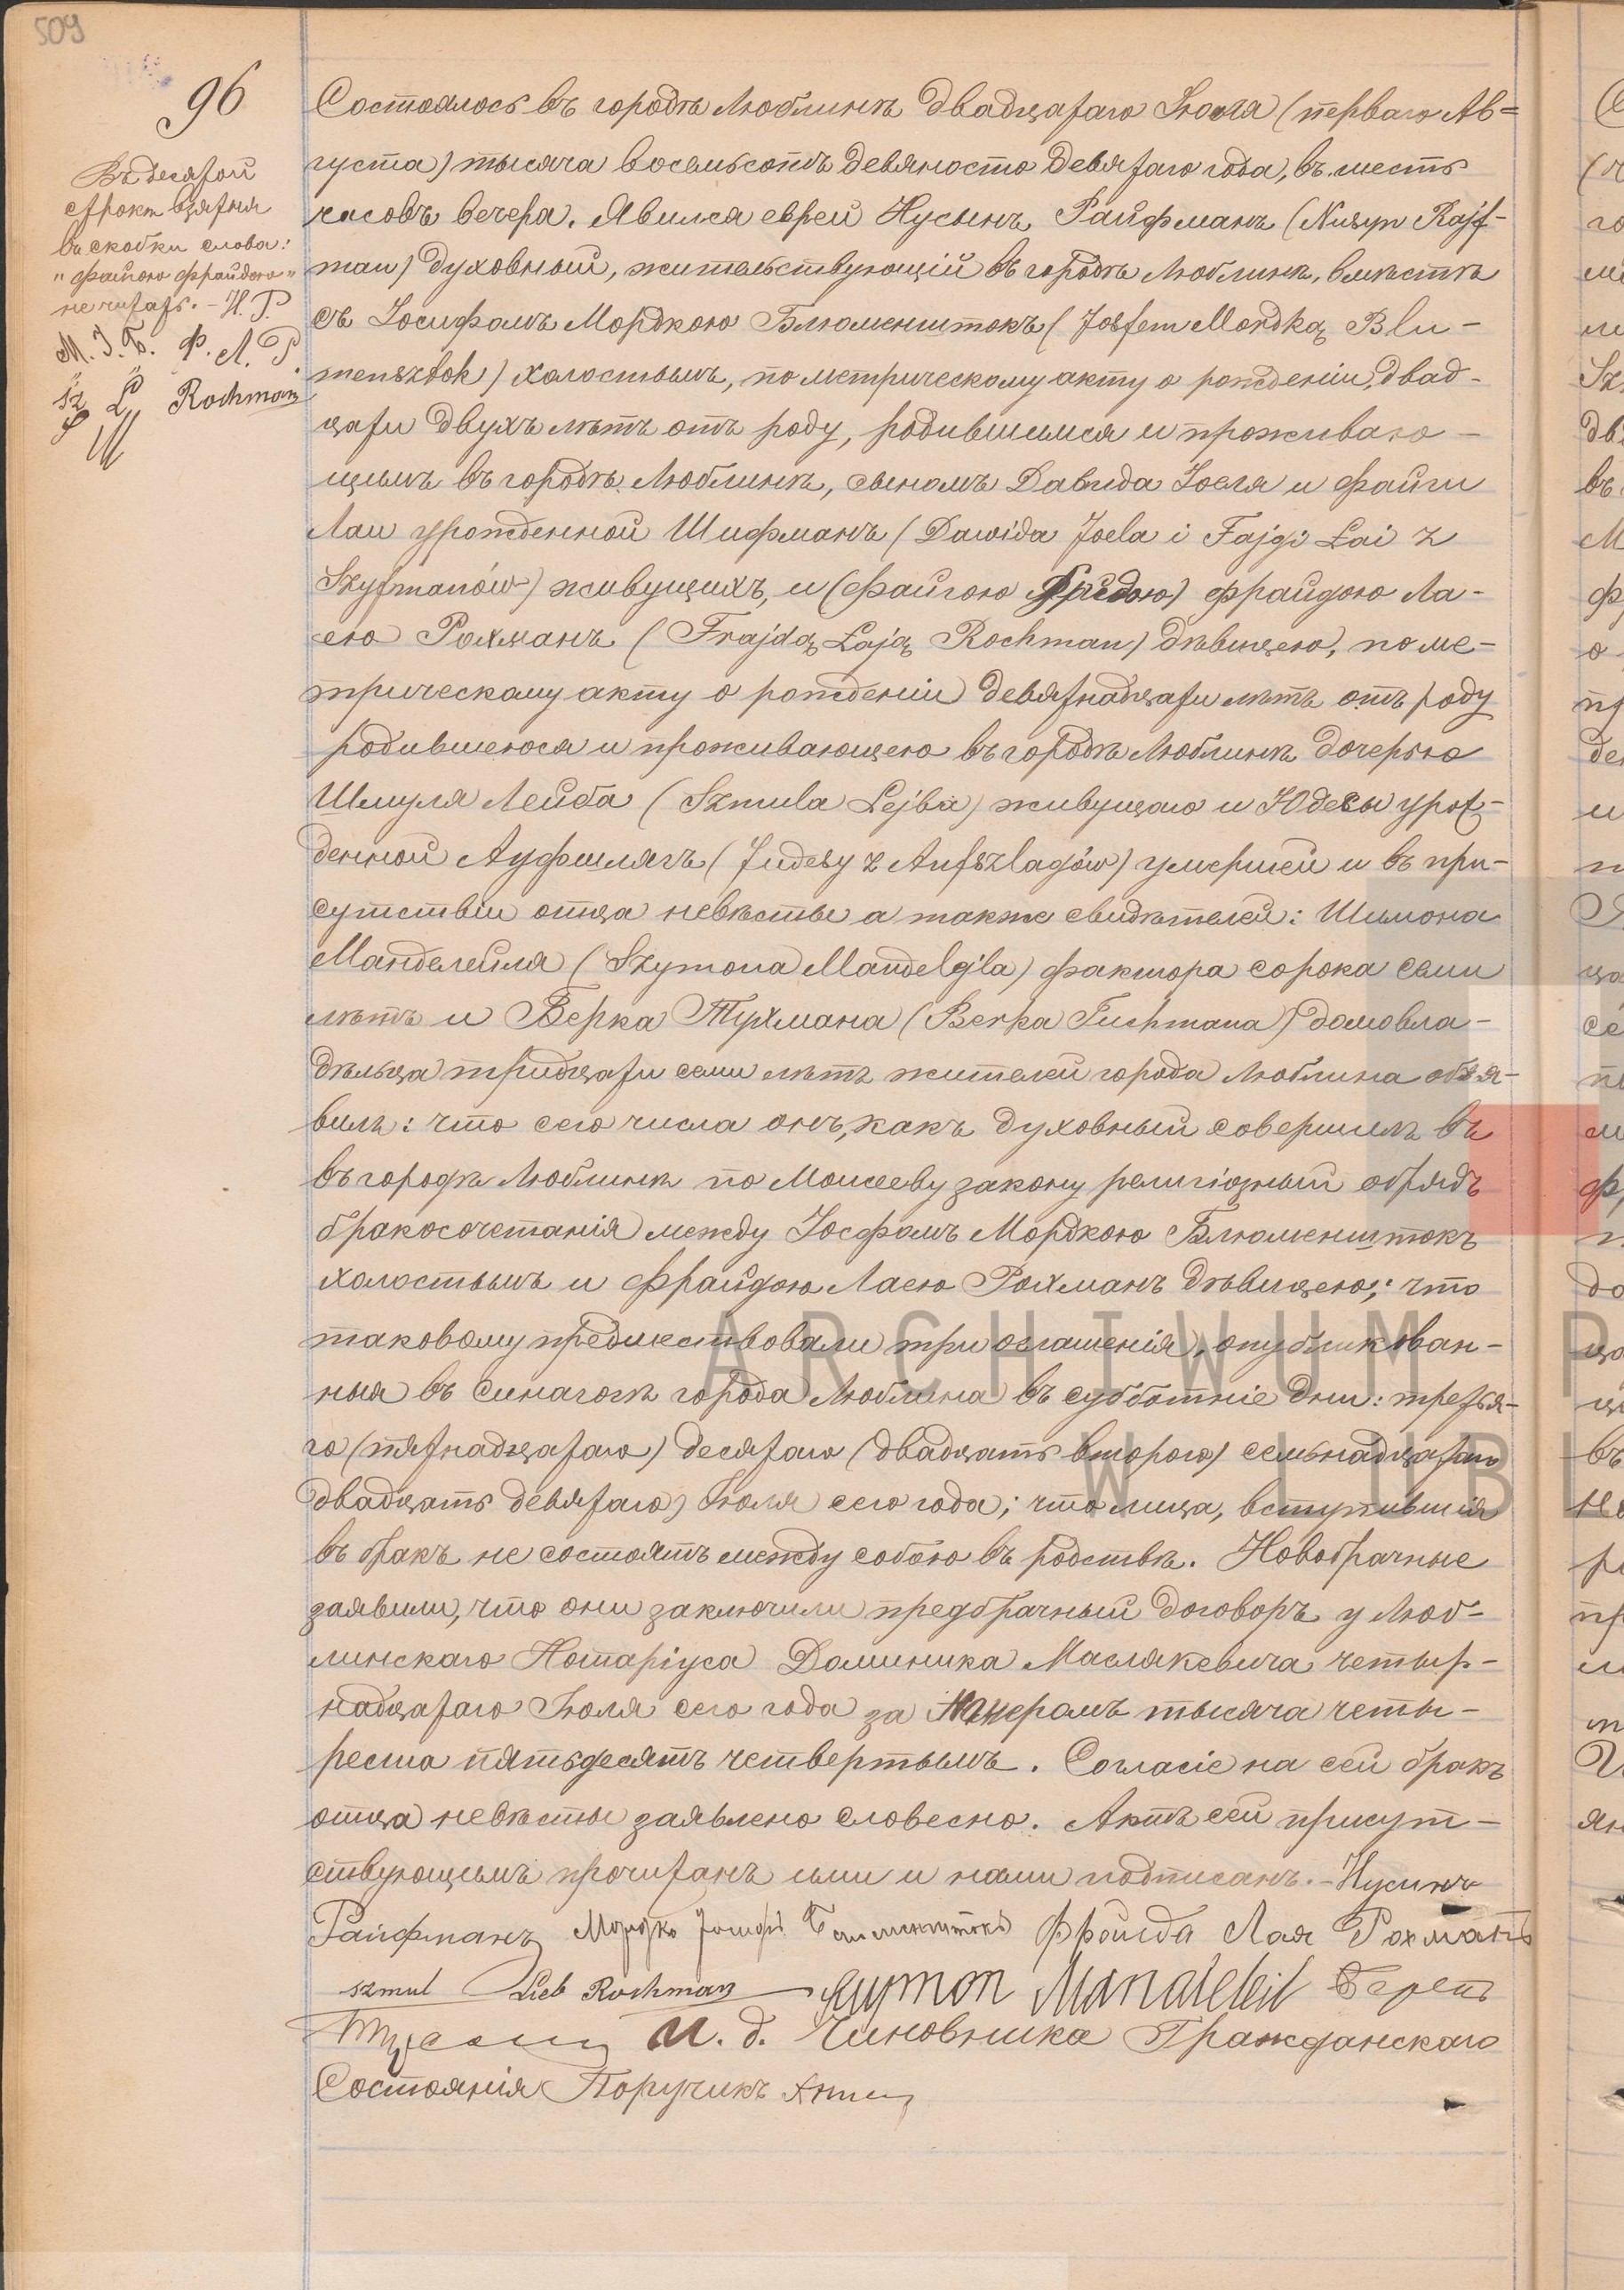 509
96
Въ десятой
строкѣ взятыя
въ скобки слова:
"Файгою Фрайдою"
не читать. - Н. Р.
М. І. Б. Ф. Л. Р
Sz L Rochman
Состоялось въ городѣ Люблинѣ двадцатаго Іюля (перваго Ав=
густа) тысяча восемьсотъ девяносто девятаго года, въ шесть
часовъ вечера. Явился еврей Нусынъ Райфманъ (Nusyn Rajf-
man) духовный, жительствующій въ городѣ Люблинѣ, вмѣстѣ
съ Іосифомъ Мордкою Блюменштокъ (Josfem Mordką Blu-
mensztok) холостымъ, по метрическому акту о рожденіи, двад-
цати двухъ лѣтъ отъ роду, родившимся и проживаю-
щимъ въ городѣ Люблинѣ, сыномъ Давида Іоеля и Файги
Лаи урожденной Шифманъ (Dawida Joela i Fajgi Łai z
Szyfmanów) живущихъ, и (Файгою Фрайдою) Фрайдою Ла-
ею Рохманъ (Frajdą Łają Rochman) дѣвицею, по ме-
трическому акту о рожденіи девятнадцати лѣтъ отъ роду
родившеюся и проживающею въ городѣ Люблинѣ дочерью
Шмуля Лейба (Szmula Lejba) живущаго и Юдесы урож-
денной Ауфшлягъ (Judesy z Aufszlagów) умершей и въ при-
сутствіи отца невѣсты а также свидѣтелей: Шимона
Манделейля (Szymona Mandelejla) фактора сорока семи
лѣтъ и Берка Тухмана (Berka Tuchmana) домовла-
дѣльца тридцати семи лѣтъ жителей города Люблина объя-
вилъ: что сего числа онъ, какъ духовный совершилъ въ
въ городѣ Люблинѣ по Моисееву закону религіозный обрядъ
бракосочетанія между Іосфомъ Мордкою Блюменштокъ
холостымъ и Фрайдою Лаею Рохманъ дѣвицею; что
таковому предшествовали три оглашенія, опубликован-
ныя въ синагогѣ города Люблина въ субботніе дни: третья-
го (пятнадцатаго) десятаго (двадцать второго) семьнадцатаго
двадцать девятаго) Іюля сего года; что лица, вступившія
въ бракъ не состоятъ между собою въ родствѣ. Новобрачные
заявили, что они заключили предбрачный договоръ у Люб-
линскаго Нотаріуса Доминика Маслякевича четыр-
надцатаго Іюля сего года за Номеромъ тысяча четы-
реста пятьдесятъ четвертымъ. Согласіе на сей бракъ
отца невѣсты заявлено словесно. Актъ сей присут-
ствующимъ прочитанъ ими и нами подписанъ. - Нусинъ
Райфманъ Мордко Іосифъ Блюменштокъ Фройда Лая Рохманъ
szmul Lieb Rochman Szymon Mandeleil Берекъ
И. д. Чиновника Гражданскаго
Состоянія Поручикъ
ARCHIWUM P
W LUBL